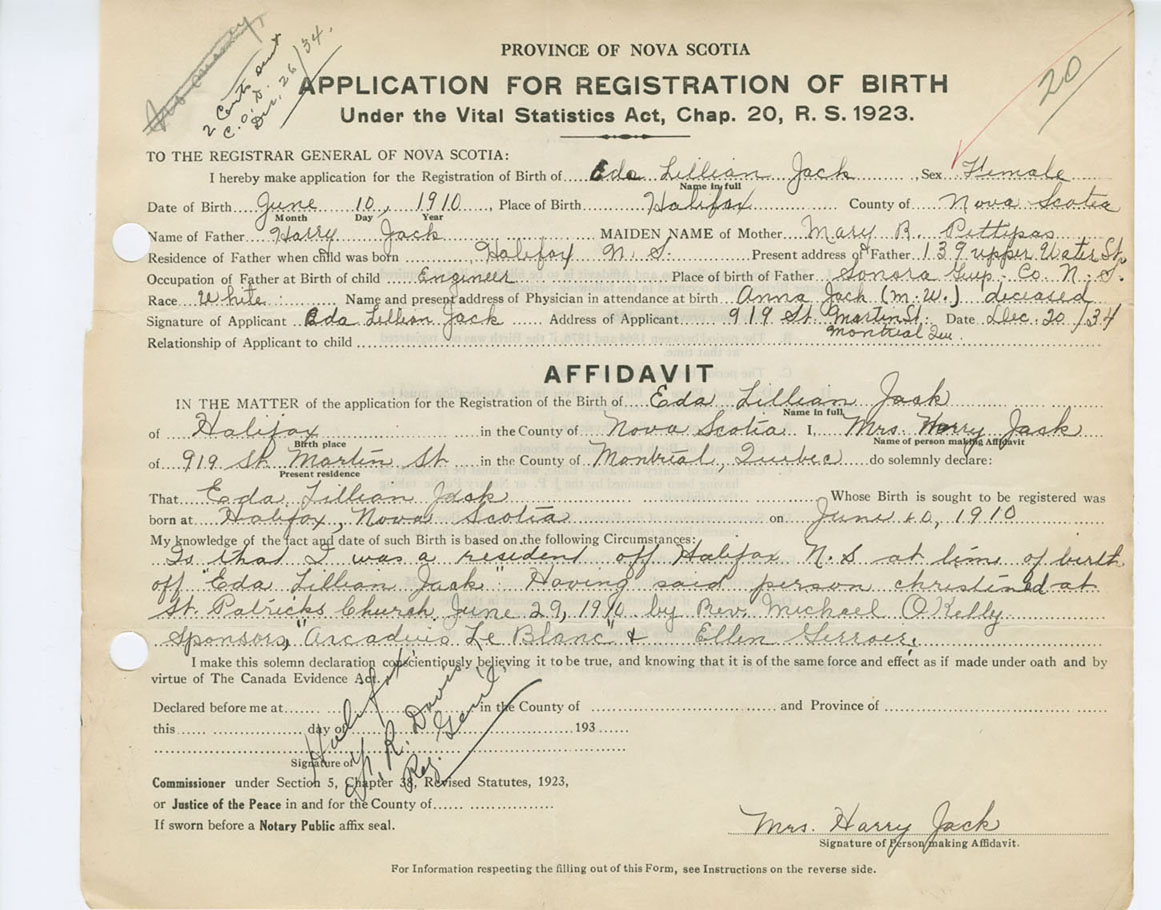 2 Cents sent
C.O.D.
Dec. 26/34.
20
PROVINCE OF NOVA SCOTIA
APPLICATION FOR REGISTRATION OF BIRTH
Under the Vital Statistics Act, Chap. 20, R. S. 1923.
TO THE REGISTRAR GENERAL OF NOVA SCOTIA:
I hereby make application for the Registration of Birth of Eda Lillian Jack, Sex Female
Name in full
Date of Birth June 10, 1910, Place of Birth Halifax County of Nova Scotia
Month Day Year
Name of Father Harry Jack MAIDEN NAME of Mother Mary R. Pettipas
Residence of Father when child was born Halifax N. S. Present address of Father 139 upper Water St.
Occupation of Father at Birth of child Engineer Place of birth of Father Sonora Guy. Co. N. S.
Race White Name and present address of Physician in attendance at birth Anna Jack (M. W.) deceased
Signature of Applicant Eda Lillian Jack Address of Applicant 919 St. Martin St. Date Dec. 20/34
Montreal Que.
Relationship of Applicant to child
AFFIDAVIT
IN THE MATTER of the application for the Registration of the Birth of Eda Lillian Jack
Name in full
of Halifax in the County of Nova Scotia I, Mrs. Harry Jack
Birth place Name of person making Affidavit
of 919 St. Martin St in the County of Montreal, Quebec do solemnly declare:
Present residence
That Eda Lillian Jack Whose Birth is sought to be registered was
born at Halifax, Nova Scotia on June 10, 1910
My knowledge of the fact and date of such Birth is based on the following Circumstances:
Is that I was a resident off Halifax N. S at time of birth
off "Eda Lillian Jack" Having said person christined at
St. Patricks Church June 29, 1910 by Rev. Michael O'Kelly
Sponsors, "Arcadius Le Blanc" & Ellen
I make this solemn declaration conscientiously believing it to be true, and knowing that it is of the same force and effect as if made under oath and by
virtue of The Canada Evidence Act.
Declared before me at in the County of and Province of
this day of 193
Halifax
R. Davis
Reg. Gen'l
Signature of
Commissioner under Section 5, Chapter 38, Revised Statutes, 1923,
or Justice of the Peace in and for the County of
If sworn before a Notary Public affix seal.
Mrs. Harry Jack
Signature of Person making Affidavit.
For Information respecting the filling out of this Form, see Instructions on the reverse side.